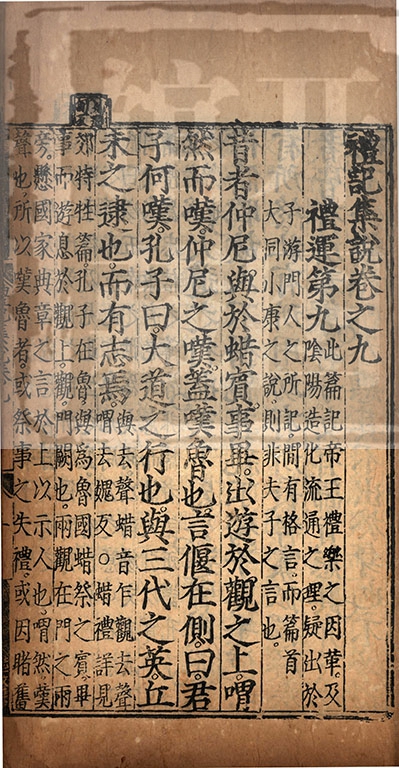 禮記集說卷之九
禮運第九
此篇記帝王禮樂之因革及
陰陽造化流通之理疑出於
子游門人之所記間有格言而篇首
大同小康之說則非夫子之言也
昔者仲尼與於蜡賓事畢出遊於觀之上喟
然而嘆仲尼之嘆蓋嘆魯也言偃在側曰君
子何嘆孔子曰大道之行也與三代之英丘
未之逮也而有志焉
與去聲蜡音乍觀去聲
喟去媿反○蜡禮詳見
郊特牲篇孔子在魯與爲魯國蜡祭之賓畢
事而遊息於觀上觀門闕也兩觀在門之兩
旁懸國家典章之言於上以示人也喟然嘆
聲也所以嘆魯者或祭事之失禮或因睹舊